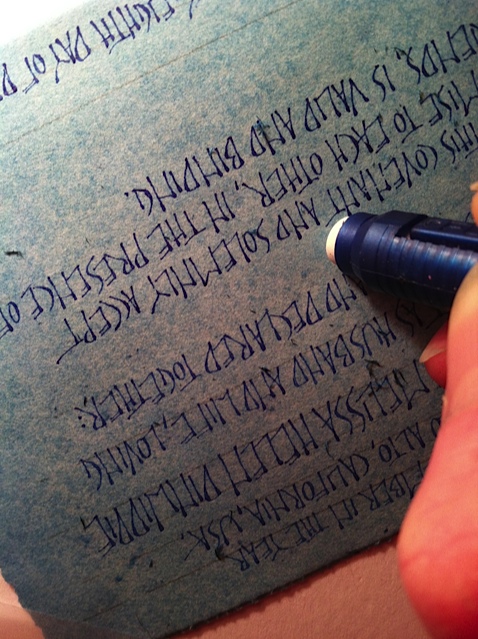 EMBER IN THE YEAR
ALTO, CALIFORNIA, USA.
MELISSA
AS HUSBAND AND WIFE, LOVING
AND DECLARED TOGETHER:
THIS COVENANT AND SOLEMNLY ACEPT
MISE TO EACH OTHER, IN THE PRESENCE OF
IENDS, IS VALID AND BINDING.
EIGHTH DAY OF D